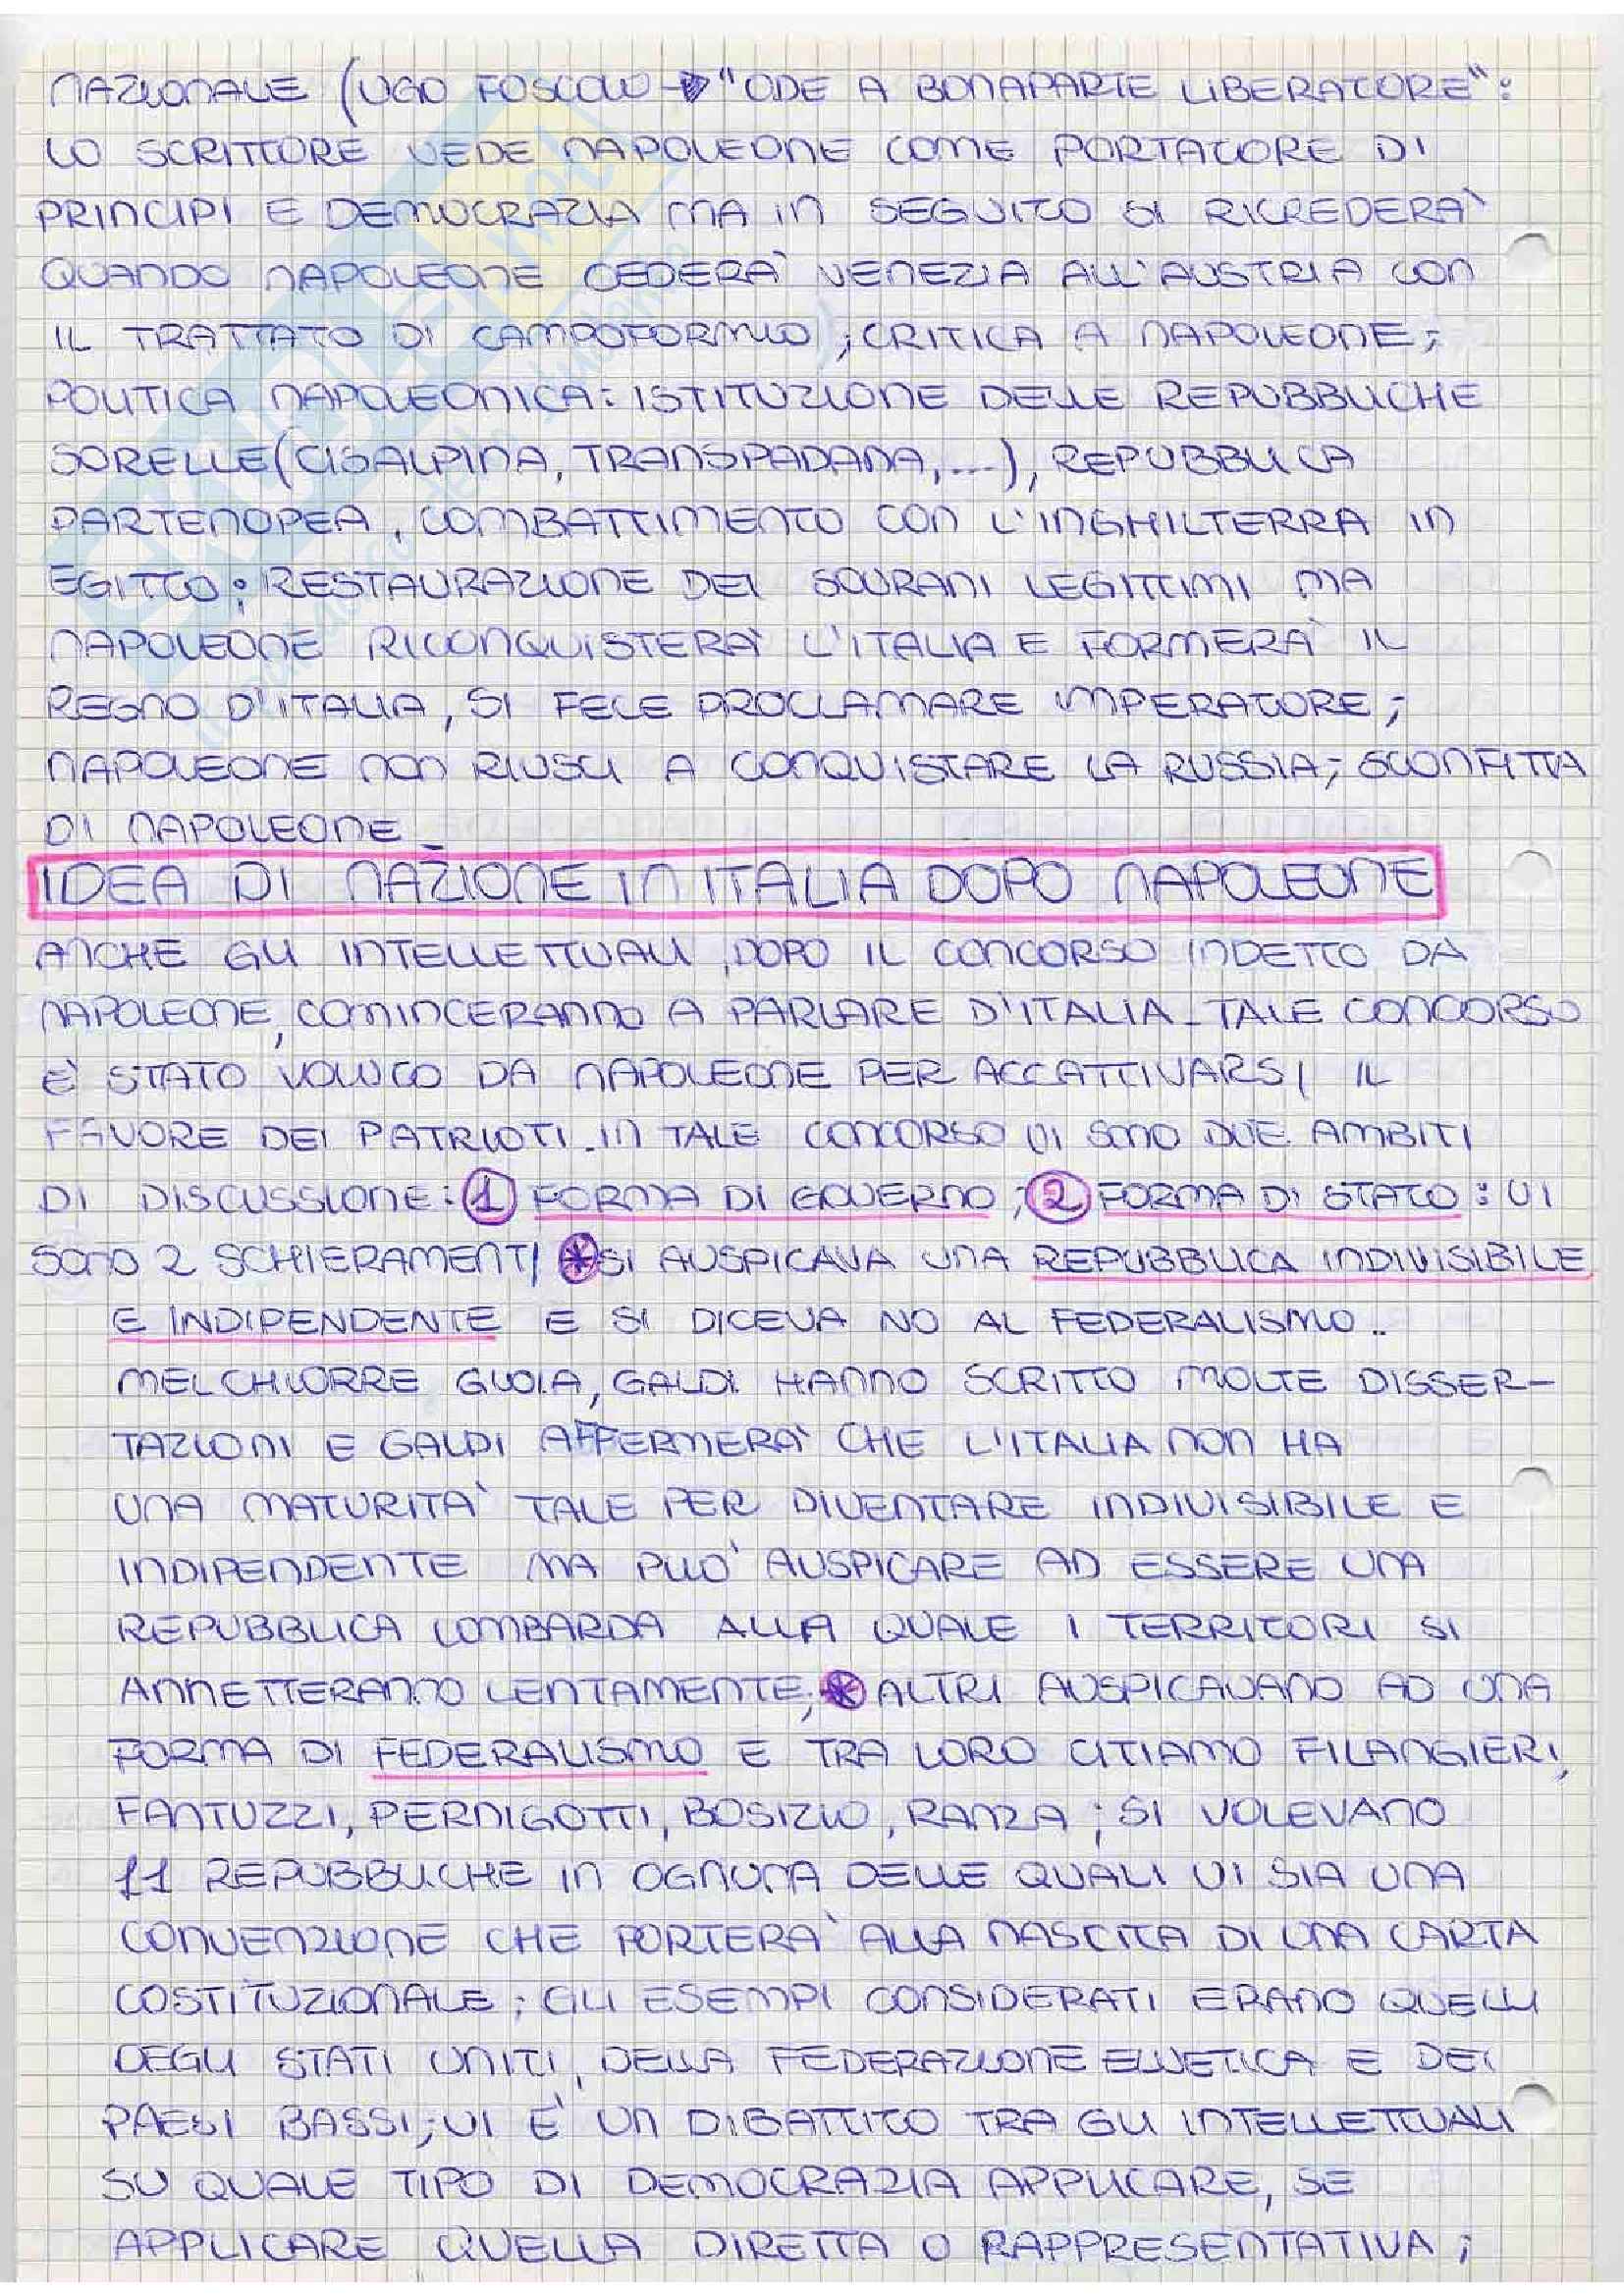 NAZIONALE (UGO FOSCOLO → "ODE A BONAPARTE LIBERATORE":
LO SCRITTORE VEDE NAPOLEONE COME PORTATORE DI
PRINCIPI E DEMOCRAZIA MA IN SEGUITO SI RICREDERA'
QUANDO NAPOLEONE CEDERA' VENEZIA ALL'AUSTRIA CON
IL TRATTATO DI CAMPOFORMIO); CRITICA A NAPOLEONE;
POLITICA NAPOLEONICA: ISTITUZIONE DELLE REPUBBLICHE
SORELLE (CISALPINA, TRANSPADANA, ...), REPUBBLICA
PARTENOPEA, COMBATTIMENTO CON L'INGHILTERRA IN
EGITTO; RESTAURAZIONE DEI SOVRANI LEGITTIMI MA
NAPOLEONE RICONQUISTERA' L'ITALIA E FORMERA' IL
REGNO D'ITALIA, SI FECE PROCLAMARE IMPERATORE;
NAPOLEONE NON RIUSCI A CONQUISTARE LA RUSSIA; SCONFITTA
DI NAPOLEONE_
IDEA DI NAZIONE IN ITALIA DOPO NAPOLEONE
ANCHE GLI INTELLETTUALI, DOPO IL CONCORSO INDETTO DA
NAPOLEONE, COMINCERANNO A PARLARE D'ITALIA_TALE CONCORSO
E' STATO VOLUTO DA NAPOLEONE PER ACCATTIVARSI IL
FAVORE DEI PATRIOTI_IN TALE CONCORSO VI SONO DUE AMBITI
DI DISCUSSIONE: 1 FORMA DI GOVERNO; 2 FORMA DI STATO: VI
SONO 2 SCHIERAMENTI * SI AUSPICAVA UNA REPUBBLICA INDIVISIBILE
E INDIPENDENTE E SI DICEVA NO AL FEDERALISMO..
MELCHIORRE GIOIA, GALDI HANNO SCRITTO MOLTE DISSER-
TAZIONI E GALDI AFFERMERA' CHE L'ITALIA NON HA
UNA MATURITA' TALE PER DIVENTARE INDIVISIBILE E
INDIPENDENTE MA PUO' AUSPICARE AD ESSERE UNA
REPUBBLICA LOMBARDA ALLA QUALE I TERRITORI SI
ANNETTERANNO LENTAMENTE; * ALTRI AUSPICAVANO AD UNA
FORMA DI FEDERALISMO E TRA LORO CITIAMO FILANGIERI,
FANTUZZI, PERNIGOTTI, BOSIZIO, RANZA; SI VOLEVANO
11 REPUBBLICHE IN OGNUNA DELLE QUALI VI SIA UNA
CONVENZIONE CHE PORTERA' ALLA NASCITA DI UNA CARTA
COSTITUZIONALE; GLI ESEMPI CONSIDERATI ERANO QUELLI
DEGLI STATI UNITI, DELLA FEDERAZIONE ELVETICA E DEI
PAESI BASSI; VI E' UN DIBATTITO TRA GLI INTELLETTUALI
SU QUALE TIPO DI DEMOCRAZIA APPLICARE, SE
APPLICARE QUELLA DIRETTA O RAPPRESENTATIVA;